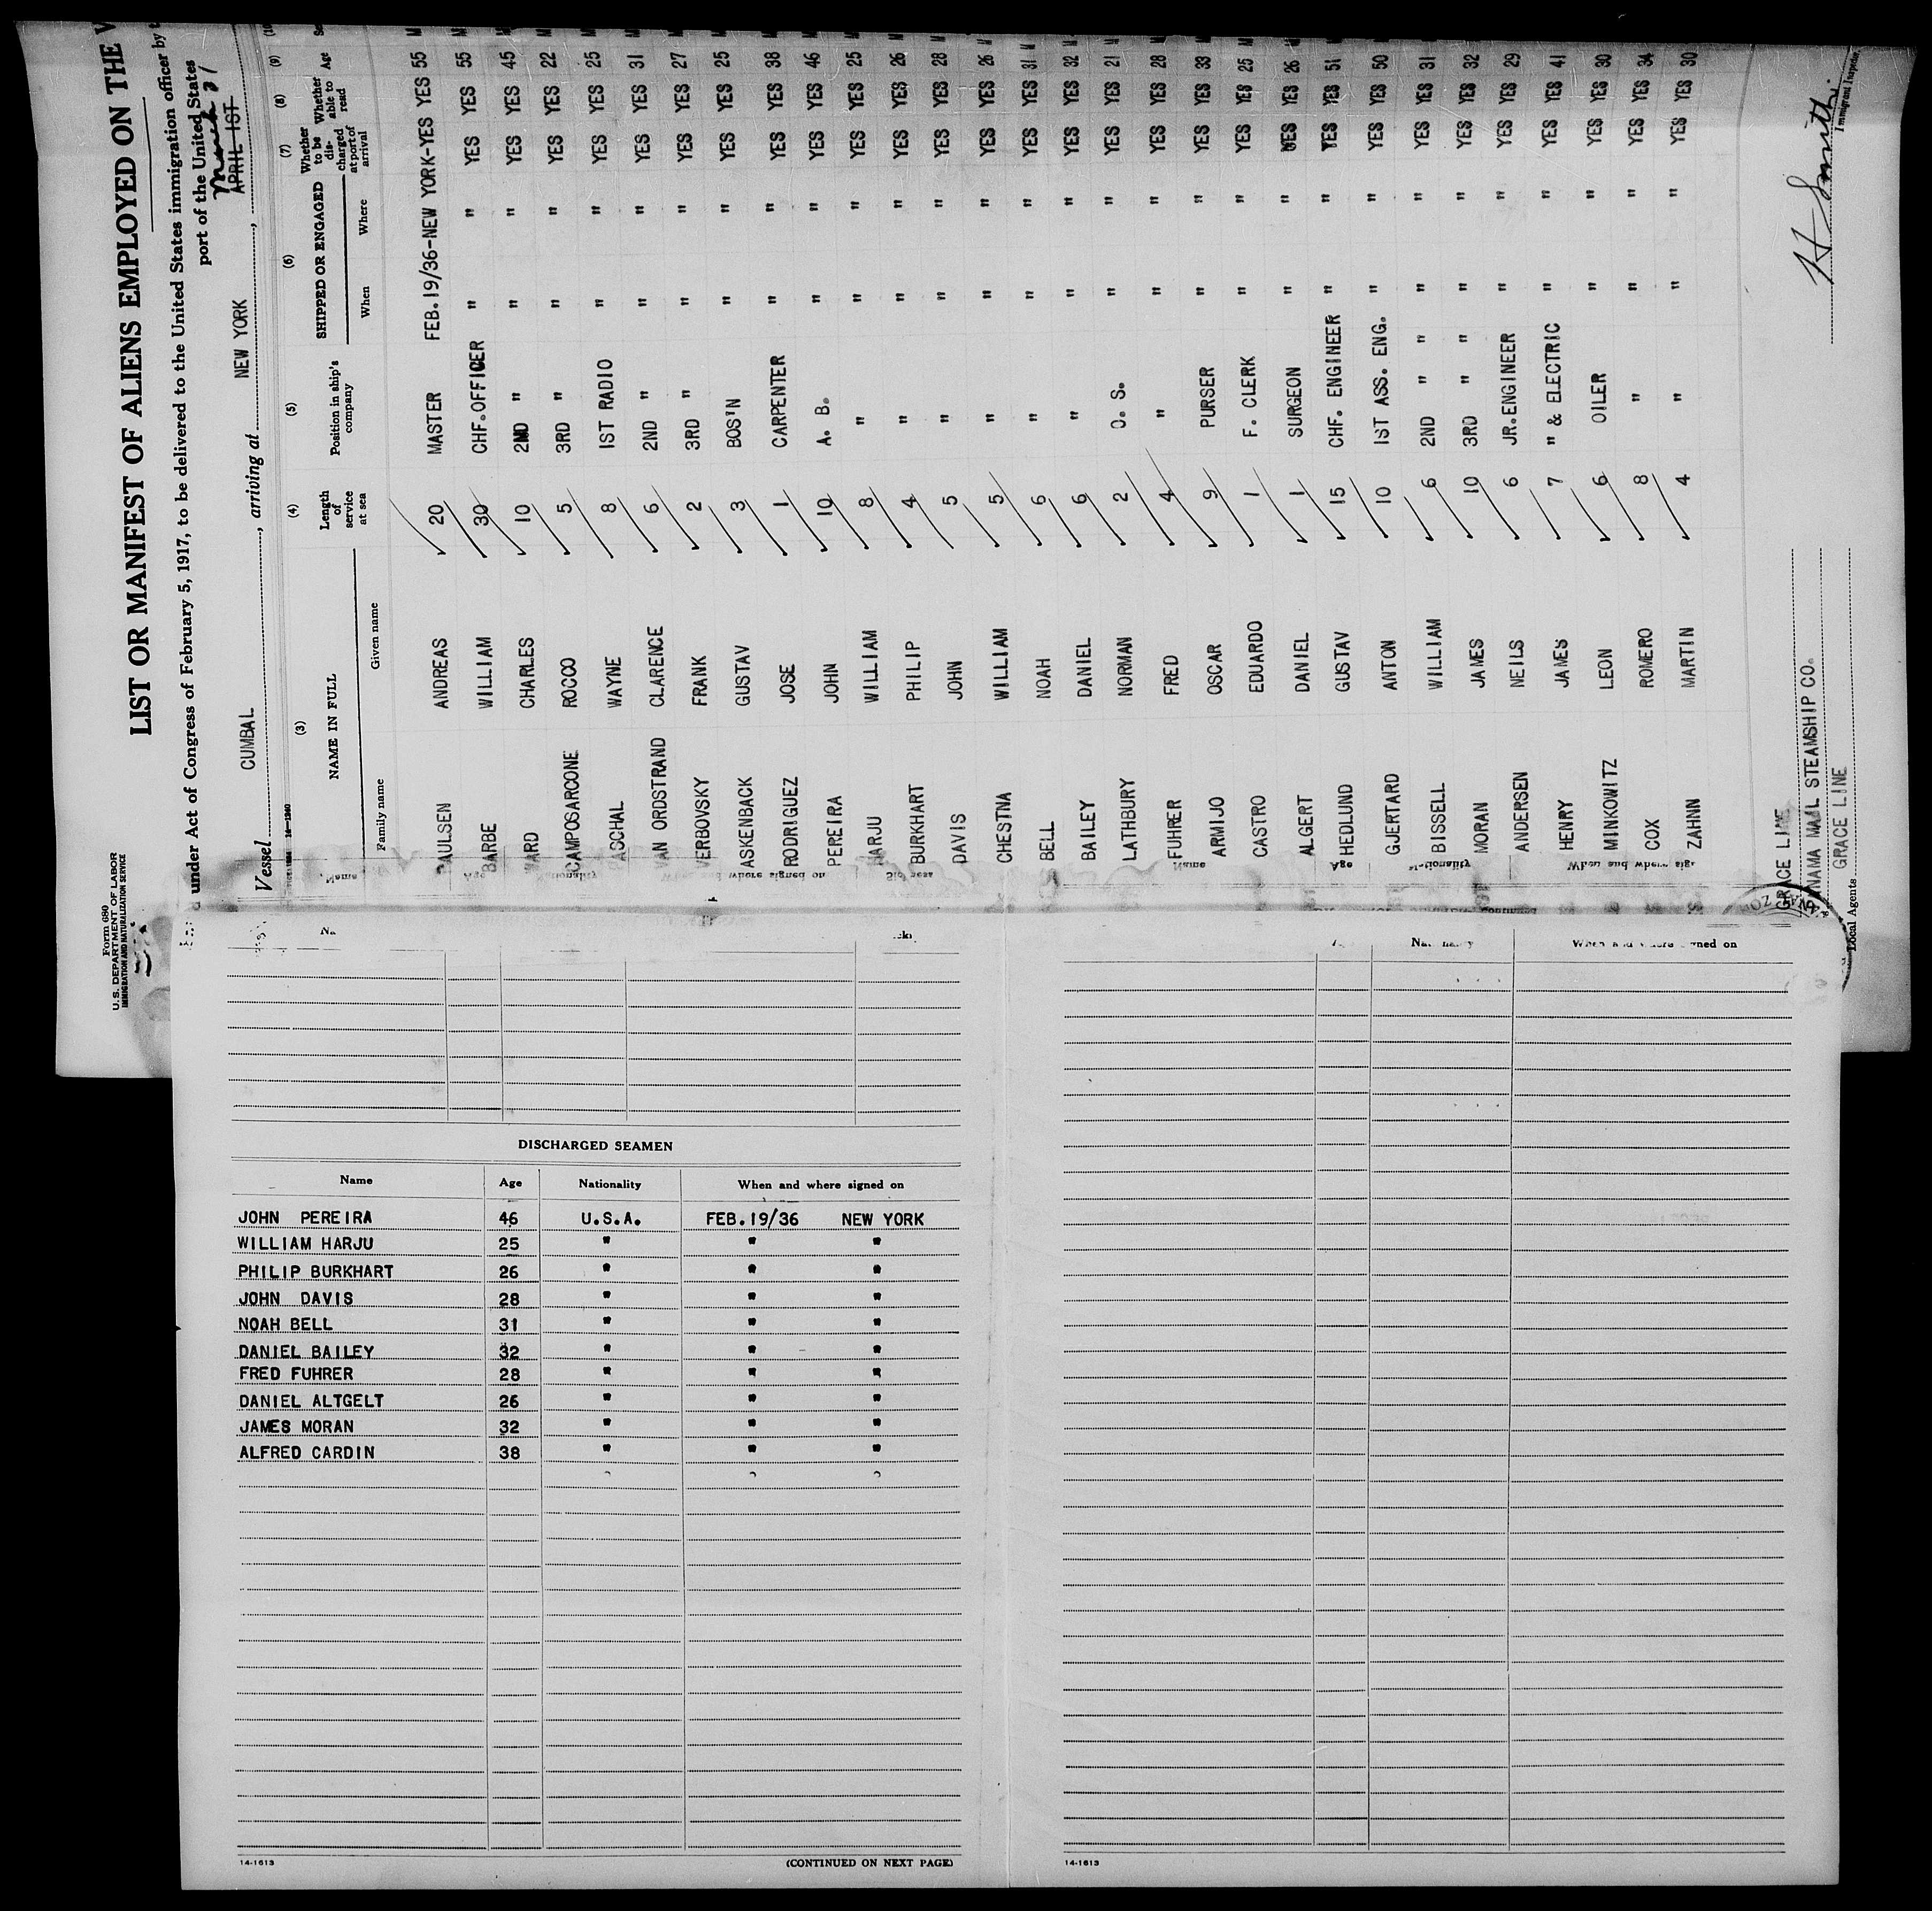 Form 680
U. S. DEPARTMENT OF LABOR
IMMIGRATION AND NATURALIZATION SERVICE
LIST OR MANIFEST OF ALIENS EMPLOYED ON THE
under Act of Congress of February 5, 1917, to be delivered to the United States immigration officer by
port of the United States
March 31
Vessel CUMBAL, arriving at NEW YORK, APRIL 1ST
14-1240
(3) (4) (5) (6) (7) (8) (9)
NAME IN FULL Length of service at sea Position in ship's company SHIPPED OR ENGAGED Whether to be discharged at port of arrival Whether able to read Age
Family name Given name When Where
PAULSEN ANDREAS 20 MASTER FEB.19/36-NEW YORK-YES YES 55
BARBE WILLIAM 30 CHF.OFFICER " " YES YES 55
WARD CHARLES 10 2ND " " " YES YES 45
CAMPOSARCONE ROCCO 5 3RD " " " YES YES 22
ASCHAL WAYNE 8 1ST RADIO " " YES YES 25
AN ORDSTRAND CLARENCE 6 2ND " " " YES YES 31
ERBOVSKY FRANK 2 3RD " " " YES YES 27
ASKENBACK GUSTAV 3 BOS'N " " YES YES 25
RODRIGUEZ JOSE 1 CARPENTER " " YES YES 38
PEREIRA JOHN 10 A. B. " " YES YES 46
HARJU WILLIAM 8 " " " YES YES 25
BURKHART PHILIP 4 " " " YES YES 26
DAVIS JOHN 5 " " " YES YES 28
CHESTNA WILLIAM 5 " " " YES YES 26
BELL NOAH 6 " " " YES YES 31
BAILEY DANIEL 6 " " " YES YES 32
LATHBURY NORMAN 2 O. S. " " YES YES 21
FUHRER FRED 4 " " " YES YES 28
ARMIJO OSCAR 9 PURSER " " YES YES 33
CASTRO EDUARDO 1 F. CLERK " " YES YES 25
ALGERT DANIEL 1 SURGEON " " YES YES 26
HEDLUND GUSTAV 15 CHF. ENGINEER " " YES YES 51
GJERTARD ANTON 10 1ST ASS. ENG. " " YES YES 50
BISSELL WILLIAM 6 2ND " " " " YES YES 31
MORAN JAMES 10 3RD " " " " YES YES 32
ANDERSEN NEILS 6 JR.ENGINEER " " YES YES 29
HENRY JAMES 7 " & ELECTRIC " " YES YES 41
MINKOWITZ LEON 6 OILER " " YES YES 30
COX ROMERO 8 " " " YES YES 34
ZAHNN MARTIN 4 " " " YES YES 30
GRACE LINE
PANAMA MAIL STEAMSHIP CO.
GRACE LINE
Local Agents
H Smith.
Immigrant Inspector.
When and where signed on
DISCHARGED SEAMEN
Name Age Nationality When and where signed on
JOHN PEREIRA 46 U.S.A. FEB.19/36 NEW YORK
WILLIAM HARJU 25 " " "
PHILIP BURKHART 26 " " "
JOHN DAVIS 28 " " "
NOAH BELL 31 " " "
DANIEL BAILEY 32 " " "
FRED FUHRER 28 " " "
DANIEL ALTGELT 26 " " "
JAMES MORAN 32 " " "
ALFRED CARDIN 38 " " "
14-1613
(CONTINUED ON NEXT PAGE)
14-1613